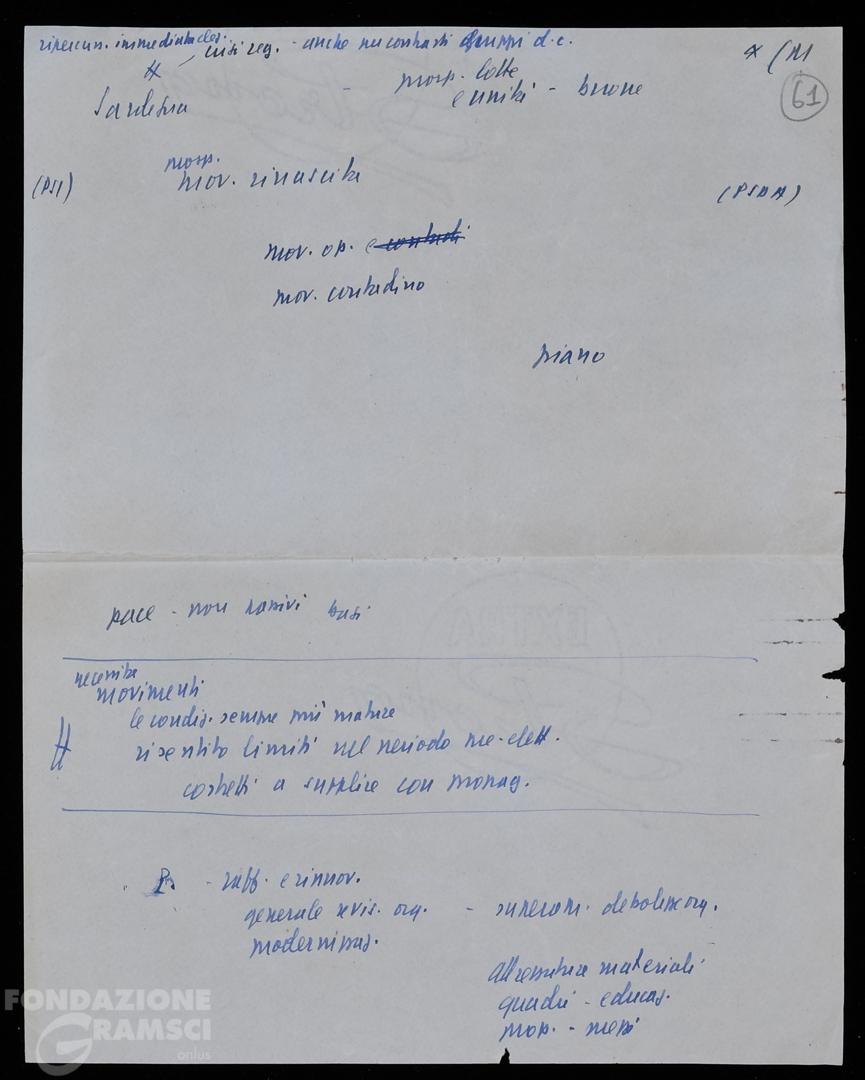 ripercuss. immediata elez.
crisi reg. - anche nei contrasti gruppi d.c.
# Sardegna - prosp. lotte
e unità - buone
61
(PSI)
prosp.
mov. rinascita
(PSDA)
mov. op. e contadi
mov. contadino
piano
pace - non basi
necessità
movimenti
le condiz. sempre più mature
# risentito limiti nel periodo pre-elett.
costretti a supplire con propag.
P. - raff. e rinnov.
generale revis. org. - superam. debolezze org.
modernizzaz.
attrezzatura materiali
quadri - educaz.
prop. -
FONDAZIONE
GRAMSCI
onlus